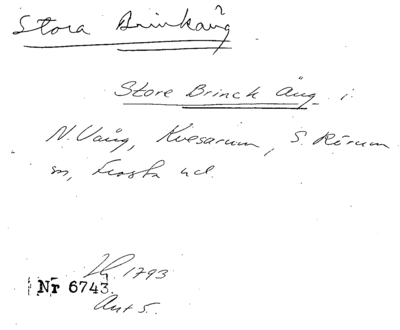 Stora Brinkäng
Store Brinck Äng i
N. Vång, Kvesarum, S. Rörum
sn, Frosta hd.
1793
Nr 6743
Akt 5.